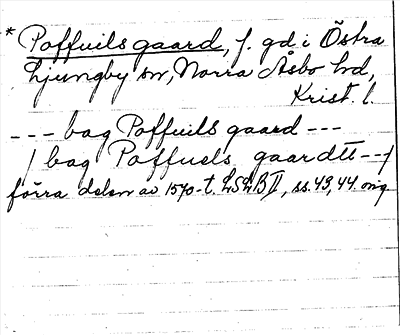 * Poffuils gaard, f. gd. i Östra
Ljungby sn, Norra Åsbo hd,
Krist. l.
--- bag Poffuils gaard ---
/ bag Poffuels gaardtt --/
förra delen av 1570-t. LSLB II, ss. 43, 44. orig.